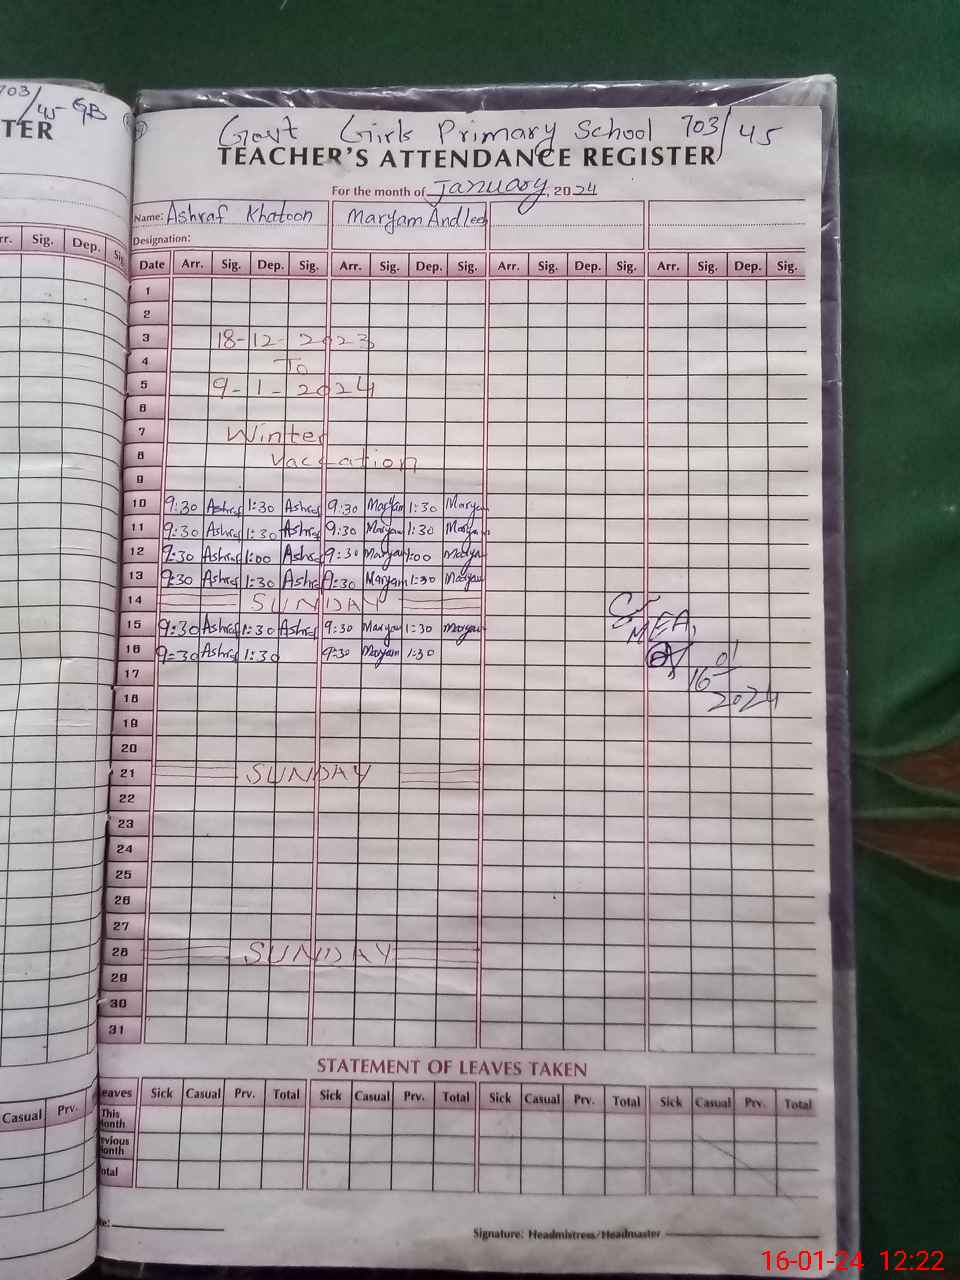 703/45 GB
TER
Govt Girls Primary School 703/45
TEACHER'S ATTENDANCE REGISTER
For the month of January, 2024
Name: Ashraf Khatoon Maryam Andleeb
Designation:
Sig. Dep. Sig.
Date Arr. Sig. Dep. Sig. Arr. Sig. Dep. Sig. Arr. Sig. Dep. Sig. Arr. Sig. Dep. Sig.
1
2
3 18-12-2023
4 To
5 9-1-2024
6
7 Winter
8 vaccation
9
10 9:30 Ashraf 1:30 Ashraf 9:30 Maryam 1:30 Maryam
11 9:30 Ashraf 1:30 Ashraf 9:30 Maryam 1:30 Maryam
12 9:30 Ashraf 1:00 Ashraf 9:30 Maryam 1:00 Maryam
13 9:30 Ashraf 1:30 Ashraf 9:30 Maryam 1:30 Maryam
14 SUNDAY
15 9:30 Ashraf 1:30 Ashraf 9:30 Maryam 1:30 Maryam
16 9:30 Ashraf 1:30 9:30 Maryam 1:30
MEA,
16-01-2024
17
18
19
20
21 SUNDAY
22
23
24
25
26
27
28 SUNDAY
29
30
31
STATEMENT OF LEAVES TAKEN
Casual Prv.
eaves Sick Casual Prv. Total Sick Casual Prv. Total Sick Casual Prv. Total Sick Casual Prv. Total
This Month
evious Month
otal
Signature: Headmistress/Headmaster
16-01-24 12:22